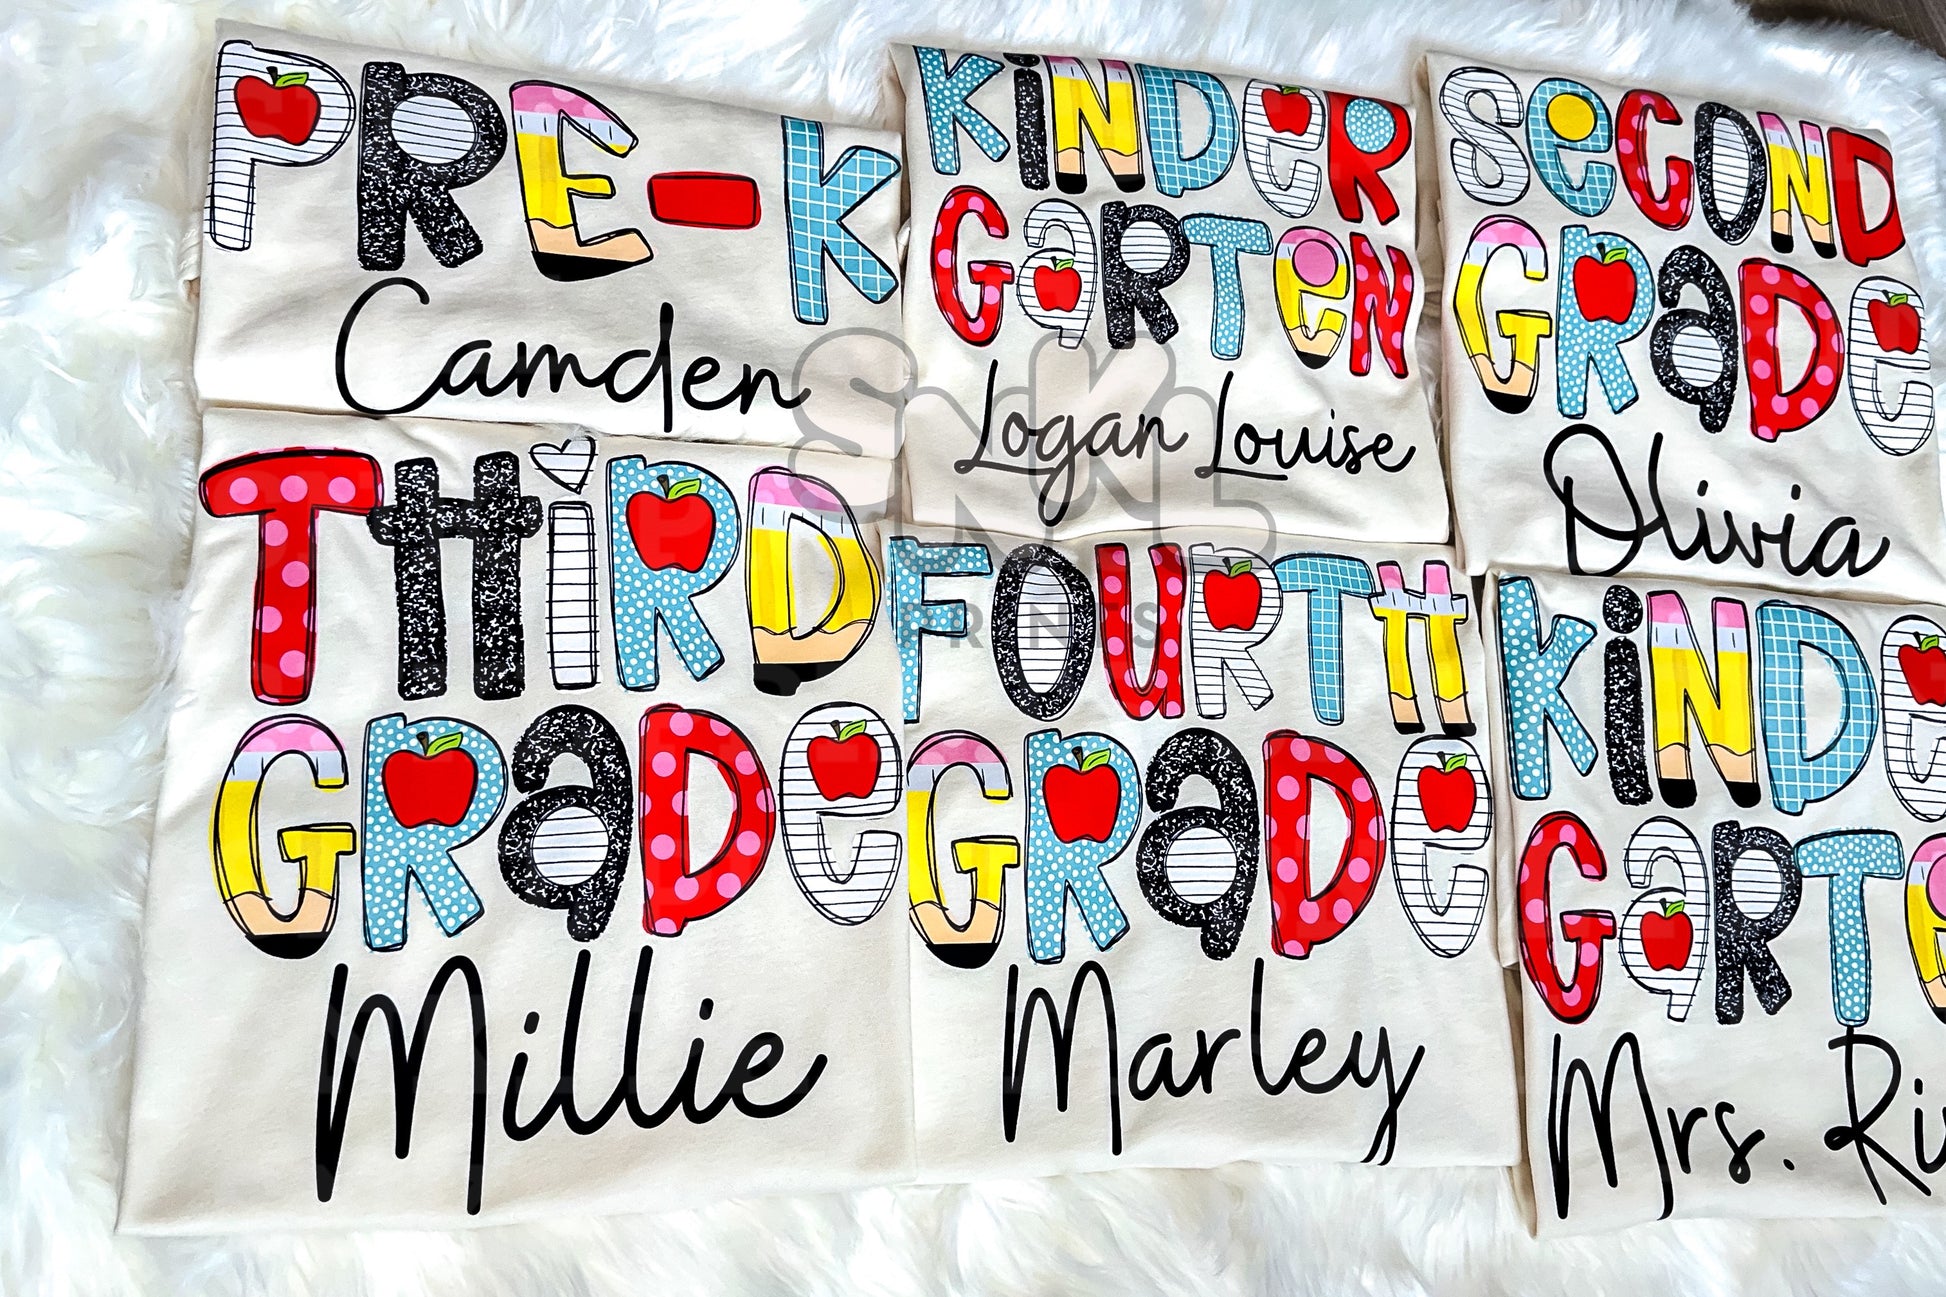 PRE-K
Camden
KiNDeR
GaRTeN
Logan Louise
SeCOND
GRaDe
Olivia
THiRD
GRaDe
Millie
FOURTH
GRaDe
Marley
KiNDe
GaRTe
Mrs. Ri
SNKL
PRINTS